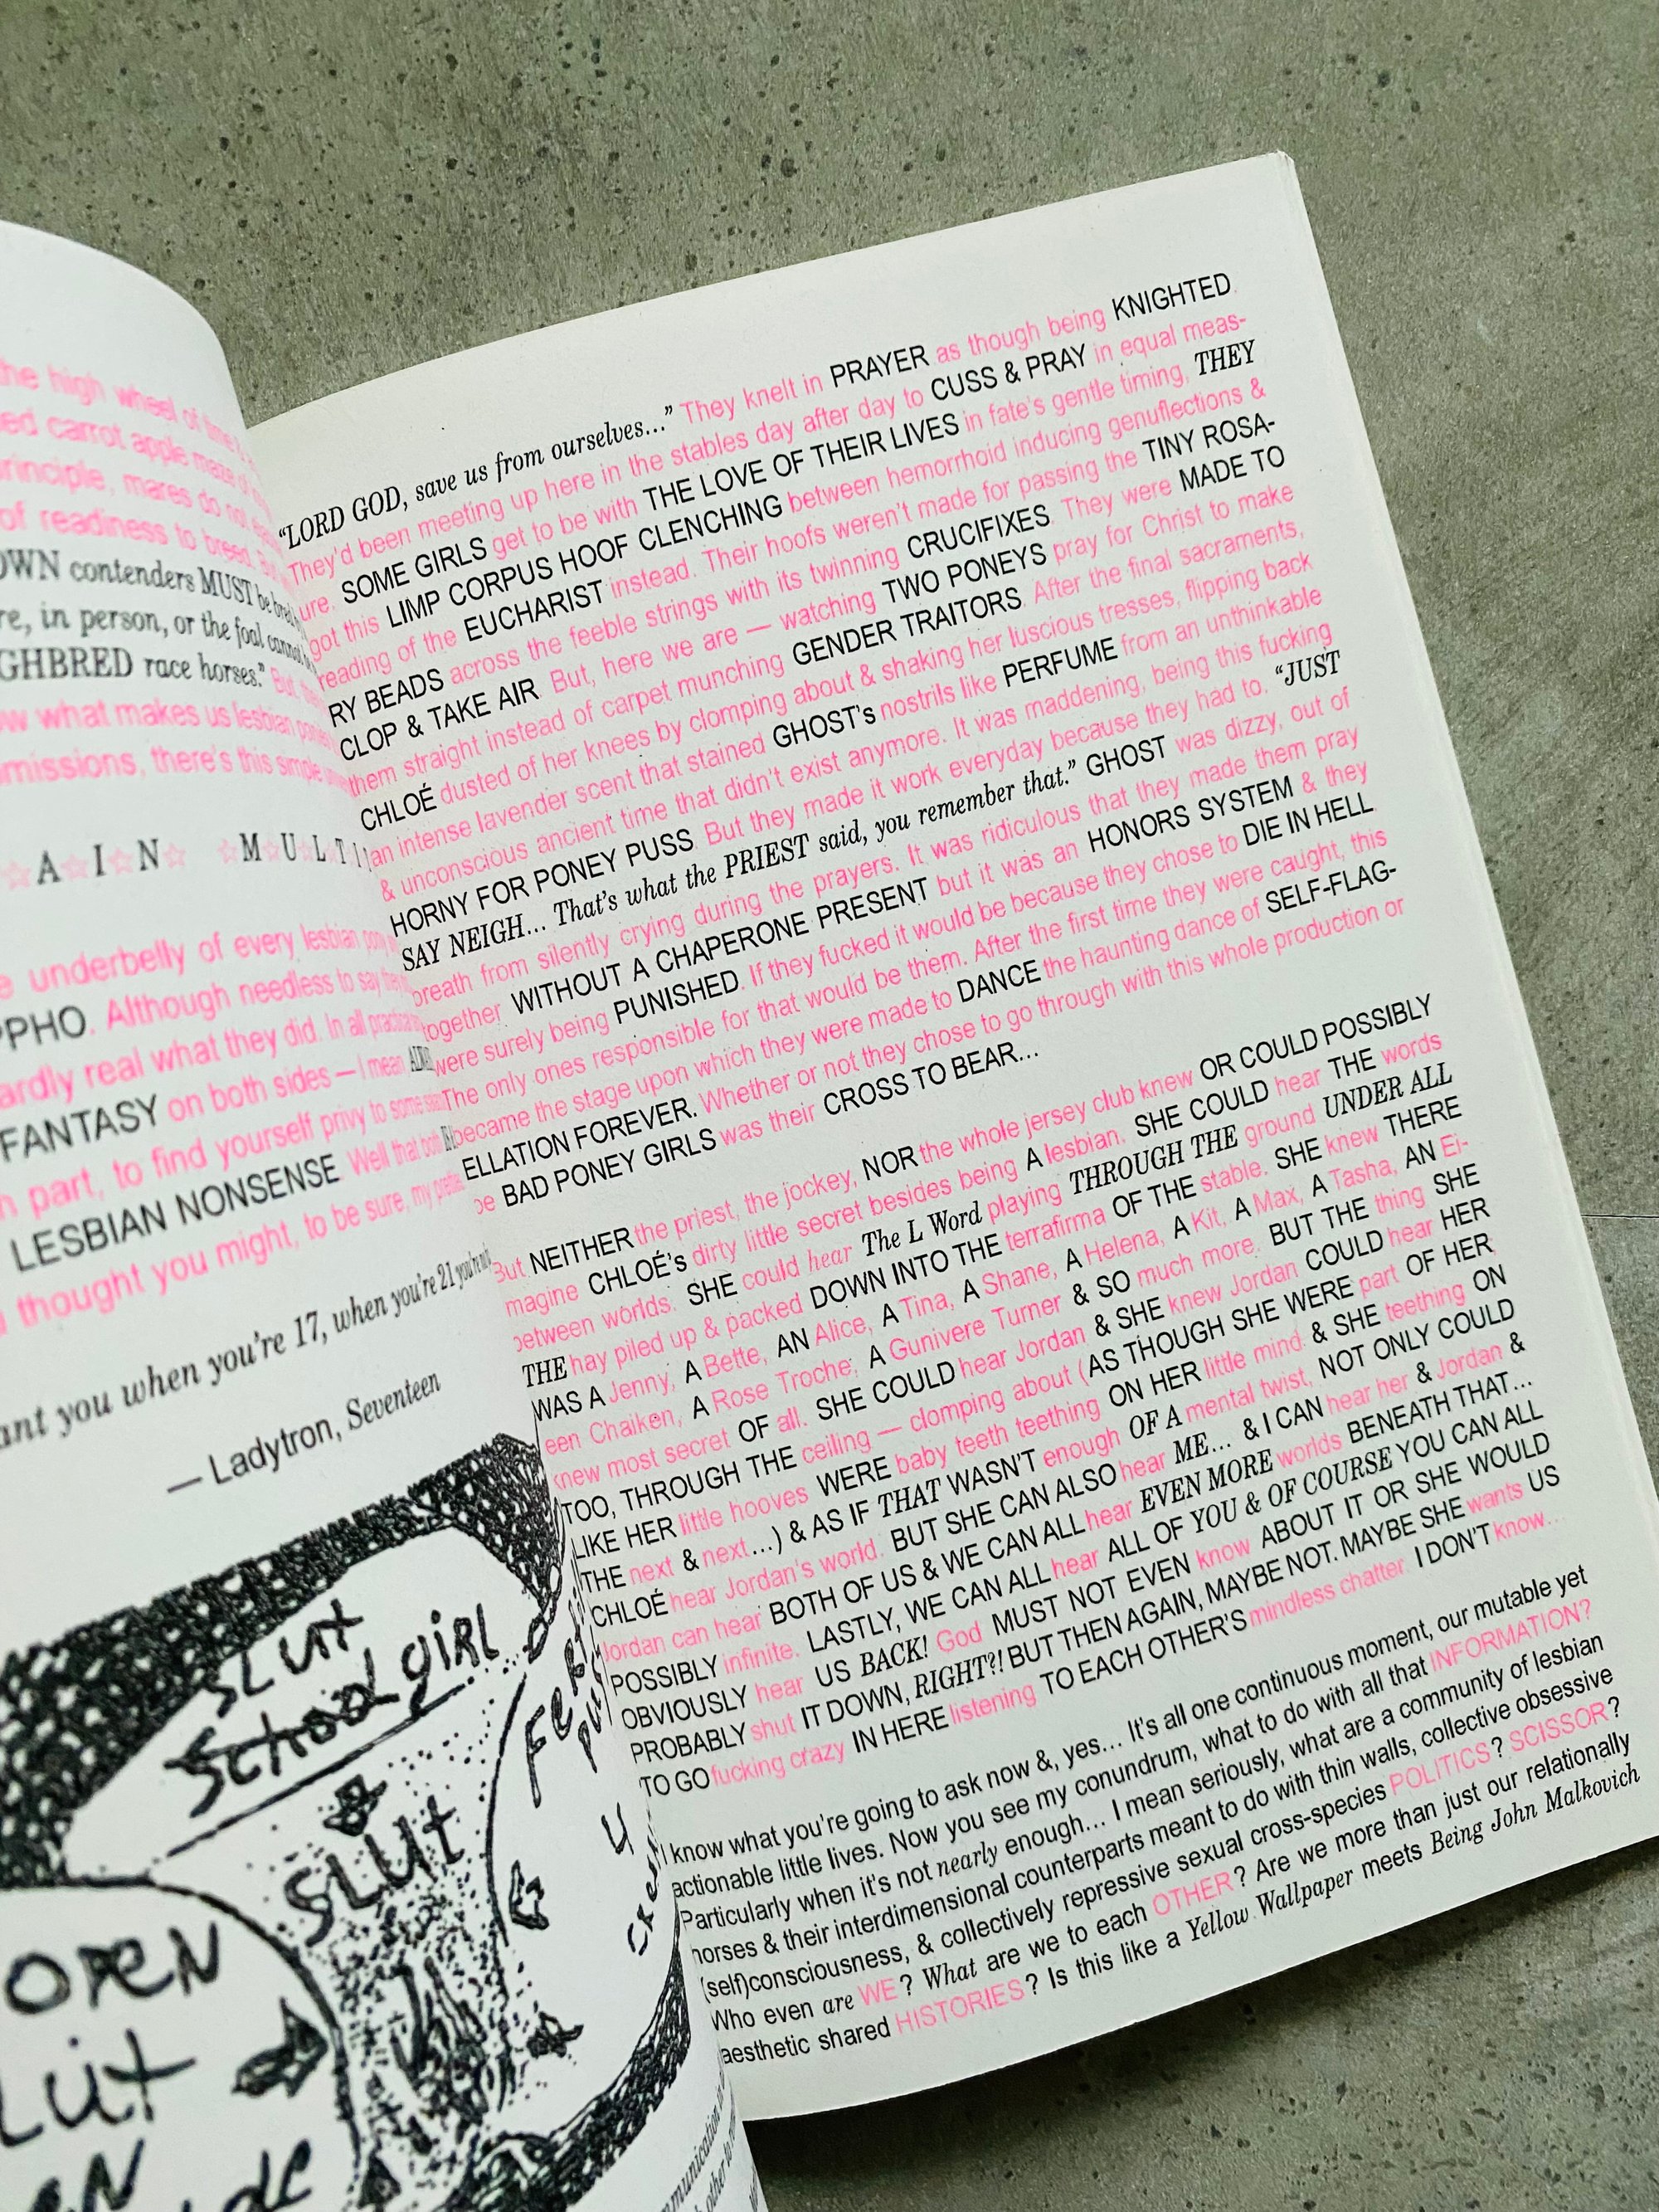 the high wheel of
ed carrot apple maze of
rinciple, mares do not
of readiness to breed. But
OWN contenders MUST be bred
re, in person, or the foal cannot
GHBRED race horses." But,
w what makes us lesbian ponies
missions, there's this simple
☆A☆I☆N☆ ☆M☆U☆L☆T
e underbelly of every lesbian pony
PPHO. Although needless to say
ardly real what they did. In all
FANTASY on both sides — I mean
n part, to find yourself privy to some
LESBIAN NONSENSE Well that both
thought you might, to be sure, my
ant you when you're 17, when you're 21
— Ladytron, Seventeen
SLUT
School girl
SLUT
OPEN
"LORD GOD, save us from ourselves..." They knelt in PRAYER as though being KNIGHTED.
They'd been meeting up here in the stables day after day to CUSS & PRAY in equal meas-
ure. SOME GIRLS get to be with THE LOVE OF THEIR LIVES in fate's gentle timing, THEY
got this LIMP CORPUS HOOF CLENCHING between hemorrhoid inducing genuflections &
reading of the EUCHARIST instead. Their hoofs weren't made for passing the TINY ROSA-
RY BEADS across the feeble strings with its twinning CRUCIFIXES. They were MADE TO
CLOP & TAKE AIR. But, here we are — watching TWO PONEYS pray for Christ to make
them straight instead of carpet munching GENDER TRAITORS. After the final sacraments,
CHLOÉ dusted of her knees by clomping about & shaking her luscious tresses, flipping back
an intense lavender scent that stained GHOST's nostrils like PERFUME from an unthinkable
& unconscious ancient time that didn't exist anymore. It was maddening, being this fucking
HORNY FOR PONEY PUSS. But they made it work everyday because they had to. "JUST
SAY NEIGH... That's what the PRIEST said, you remember that." GHOST was dizzy, out of
breath from silently crying during the prayers. It was ridiculous that they made them pray
together WITHOUT A CHAPERONE PRESENT but it was an HONORS SYSTEM & they
were surely being PUNISHED. If they fucked it would be because they chose to DIE IN HELL.
The only ones responsible for that would be them. After the first time they were caught, this
became the stage upon which they were made to DANCE the haunting dance of SELF-FLAG-
ELLATION FOREVER. Whether or not they chose to go through with this whole production or
be BAD PONEY GIRLS was their CROSS TO BEAR...
But NEITHER the priest, the jockey, NOR the whole jersey club knew OR COULD POSSIBLY
imagine CHLOÉ's dirty little secret besides being A lesbian. SHE COULD hear THE words
between worlds. SHE could hear The L Word playing THROUGH THE ground UNDER ALL
THE hay piled up & packed DOWN INTO THE terrafirma OF THE stable. SHE knew THERE
WAS A Jenny, A Bette, AN Alice, A Tina, A Shane, A Helena, A Kit, A Max, A Tasha, AN Ei-
een Chaiken, A Rose Troche, A Gunivere Turner & SO much more. BUT THE thing SHE
knew most secret OF all. SHE COULD hear Jordan & SHE knew Jordan COULD hear HER
TOO, THROUGH THE ceiling — clomping about (AS THOUGH SHE WERE part OF HER,
LIKE HER little hooves WERE baby teeth teething ON HER little mind. & SHE teething ON
THE next & next...) & AS IF THAT WASN'T enough OF A mental twist, NOT ONLY COULD
CHLOÉ hear Jordan's world. BUT SHE CAN ALSO hear ME... & I CAN hear her & Jordan &
Jordan can hear BOTH OF US & WE CAN ALL hear EVEN MORE worlds BENEATH THAT...
POSSIBLY infinite. LASTLY, WE CAN ALL hear ALL OF YOU & OF COURSE YOU CAN ALL
OBVIOUSLY hear US BACK! God MUST NOT EVEN know ABOUT IT OR SHE WOULD
PROBABLY shut IT DOWN, RIGHT?! BUT THEN AGAIN, MAYBE NOT. MAYBE SHE wants US
TO GO fucking crazy IN HERE listening TO EACH OTHER'S mindless chatter. I DON'T know...
I know what you're going to ask now &, yes... It's all one continuous moment, our mutable yet
actionable little lives. Now you see my conundrum, what to do with all that INFORMATION?
Particularly when it's not nearly enough... I mean seriously, what are a community of lesbian
horses & their interdimensional counterparts meant to do with thin walls, collective obsessive
(self)consciousness, & collectively repressive sexual cross-species POLITICS? SCISSOR?
Who even are WE? What are we to each OTHER? Are we more than just our relationally
aesthetic shared HISTORIES? Is this like a Yellow Wallpaper meets Being John Malkovich